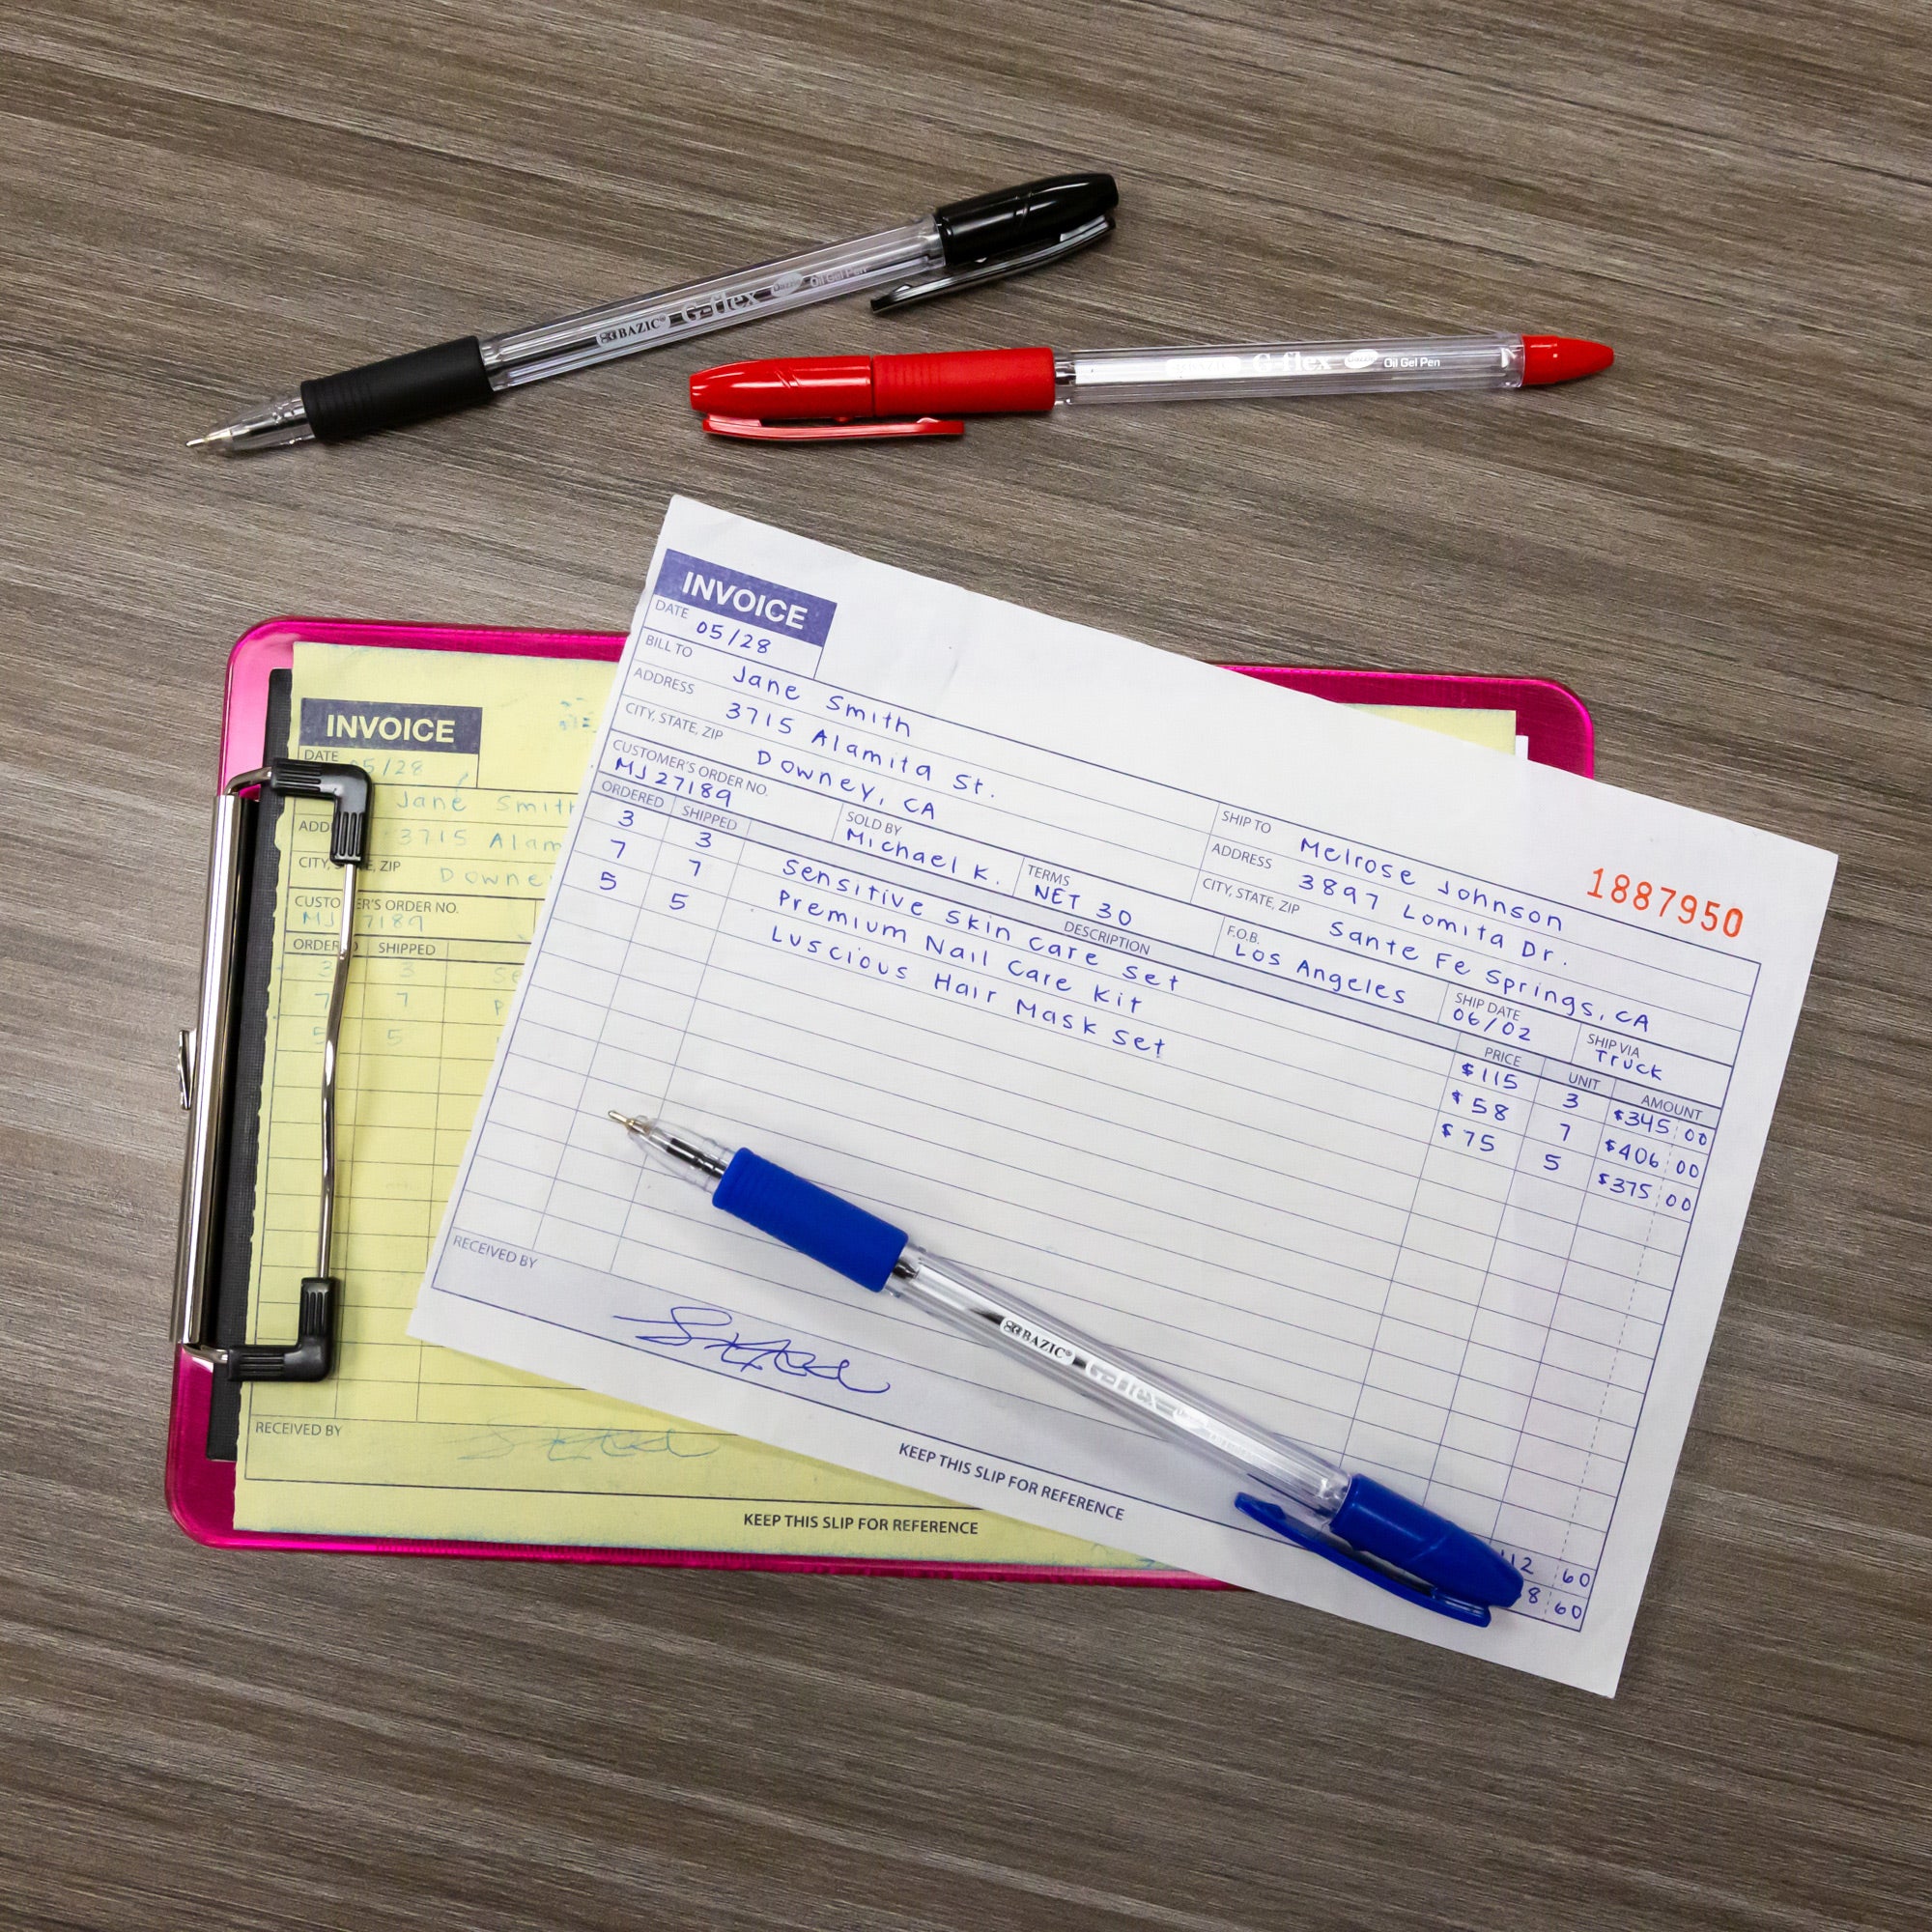 BAZIC® G-flex Oil Gel Pen
G-flex Oil Gel Pen
INVOICE
DATE 05/28
BILL TO Jane Smith
ADDRESS 3715 Alamita St.
CITY, STATE, ZIP Downey, CA
SHIP TO Melrose Johnson
ADDRESS 3897 Lomita Dr.
CITY, STATE, ZIP Sante Fe Springs, CA
1887950
CUSTOMER'S ORDER NO. MJ 27189
SOLD BY Michael K.
TERMS NET 30
F.O.B. Los Angeles
SHIP DATE 06/02
SHIP VIA Truck
ORDERED SHIPPED DESCRIPTION PRICE UNIT AMOUNT
3 3 Sensitive Skin Care Set $115 3 $345 00
7 7 Premium Nail Care Kit $58 7 $406 00
5 5 Luscious Hair Mask Set $75 5 $375 00
12 60
8 60
RECEIVED BY
KEEP THIS SLIP FOR REFERENCE
BAZIC® G-flex
INVOICE
DATE 05/28
Jane Smith
ADD 3715 Alam
CITY, ZIP Downe
CUSTO ER'S ORDER NO.
MJ 7189
ORDERED SHIPPED
3 3 Se
7 7 P
5 5
RECEIVED BY
KEEP THIS SLIP FOR REFERENCE